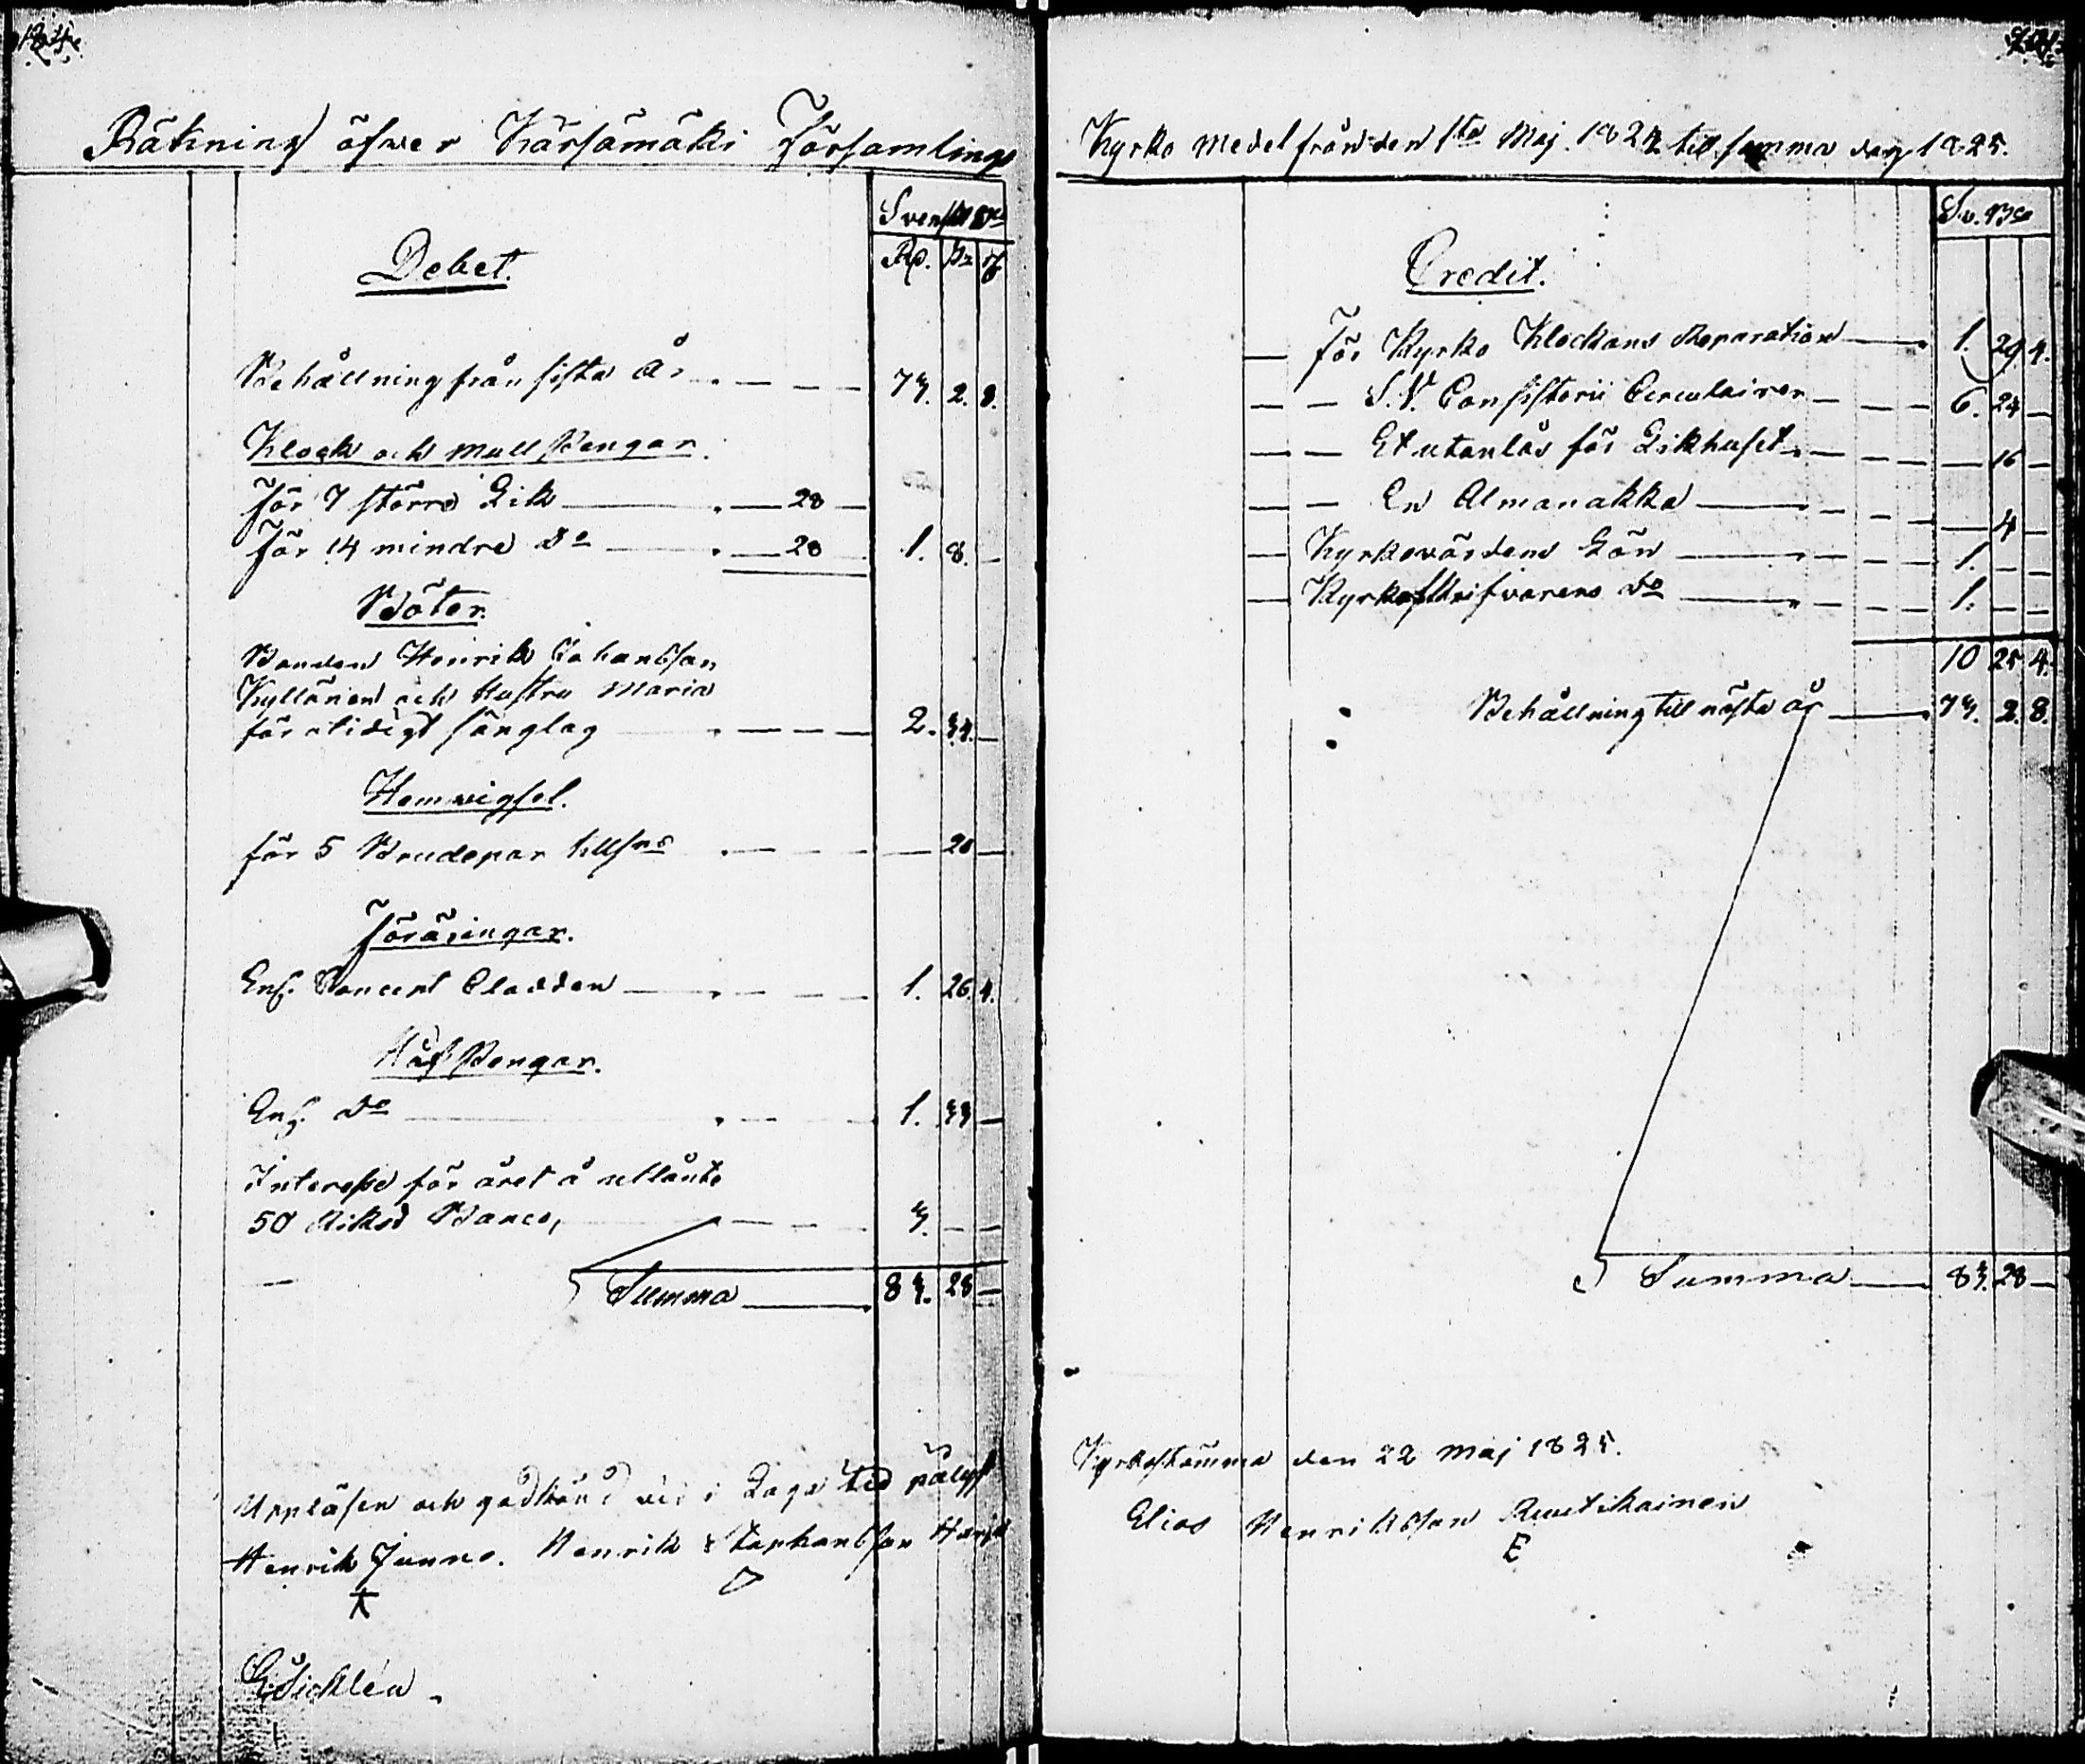 Räkning öfwer Kärsämäki Församlings
Svensk Bco
Rd. sk rs
Debet.
Behållning från sista År 73. 2. 8.
Klock och Mull Pengar.
För 7 större Lik 28
För 14 mindre Do 28 1. 8.
Böter.
Bonden Henrik Johansson
Kyllönen och hustru Maria
för otidigt sänglag 2. 34.
Hemwigsel.
för 5 Brudepar tillsns 20
Föräringar.
Enl. Concept Cladden 1. 26. 4.
Håf Pengar.
Enl. Do 1. 33
Interesse för året å utlånte
50 Riksd Banco, 3.
Summa 83. 28
Uppläsen och godkänd vid i Laga tid pålyst
Henrik Junno. Henrik Stephansson
Kyrko Medel från den 1sta Maj. 1824 till samma dag 1825.
Sv. Bco
Credit.
För Kyrko Klockans Reparation 1. 29. 4.
S.V. Consistorii Circulairer 6. 24
Et utanlås för Likhuset 16
En Almanakka 4
Kyrkovärdens Lön 1.
Kyrkoskrifvarens do 1.
10 25 4.
Behållning till nästa år 73. 2. 8.
Summa 83. 28
Kyrkostämma den 22 Maj 1825.
Elias Henriksson Ruutikainen
E